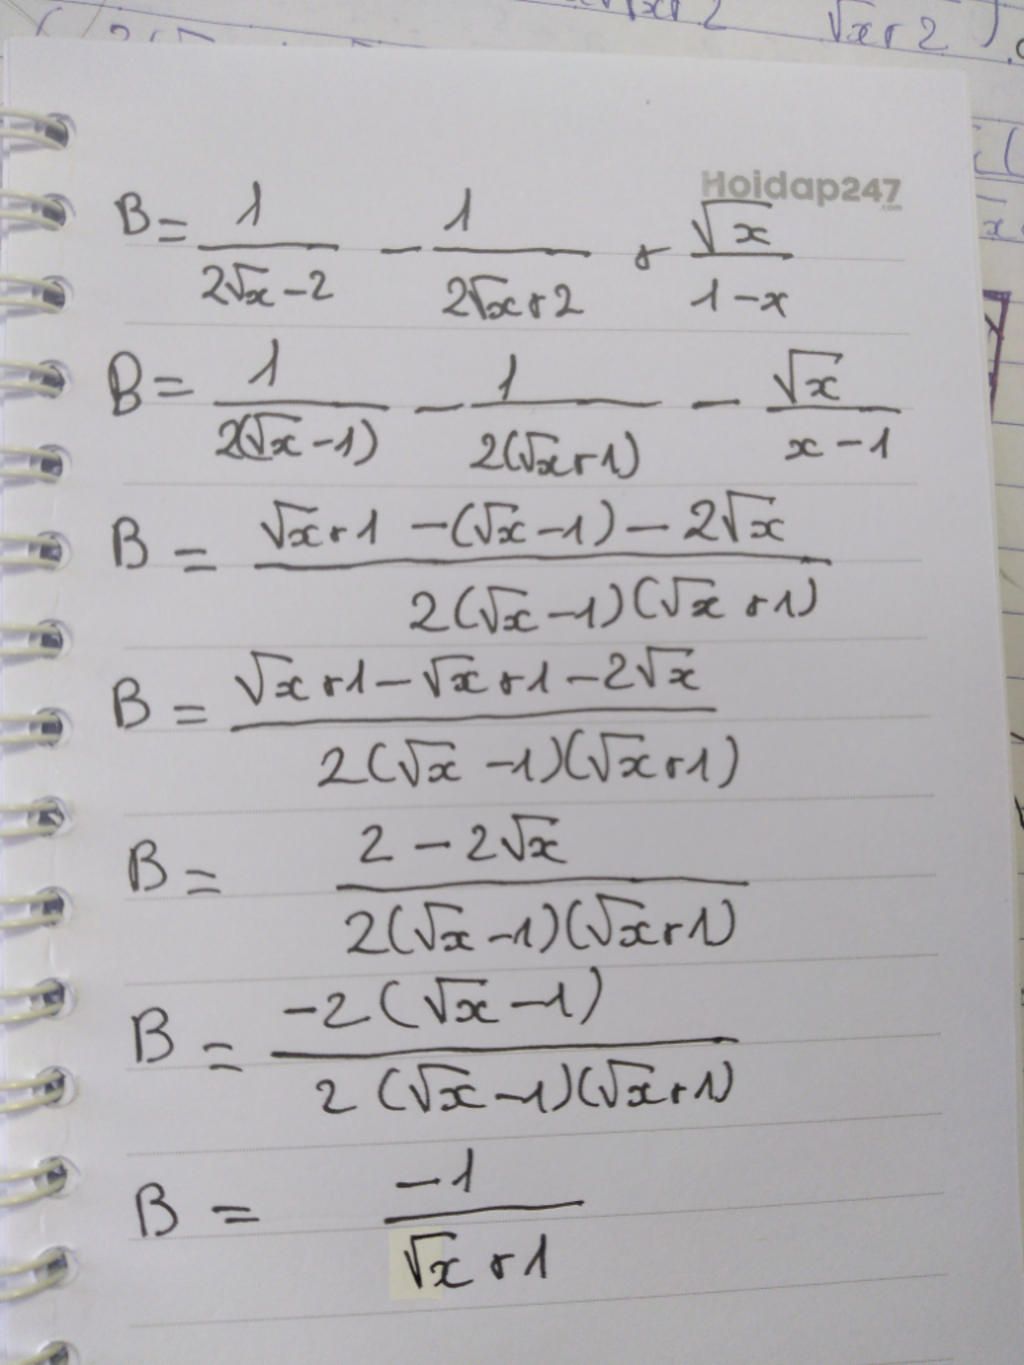 √x+2 √x+2 )
Hoidap247
.com
B = 1/(2√x-2) - 1/(2√x+2) + √x/(1-x)
B = 1/(2(√x-1)) - 1/(2(√x+1)) - √x/(x-1)
B = (√x+1 -(√x-1) - 2√x)/(2(√x-1)(√x+1))
B = (√x+1-√x+1-2√x)/(2(√x-1)(√x+1))
B = (2-2√x)/(2(√x-1)(√x+1))
B = (-2(√x-1))/(2(√x-1)(√x+1))
B = -1/(√x+1)